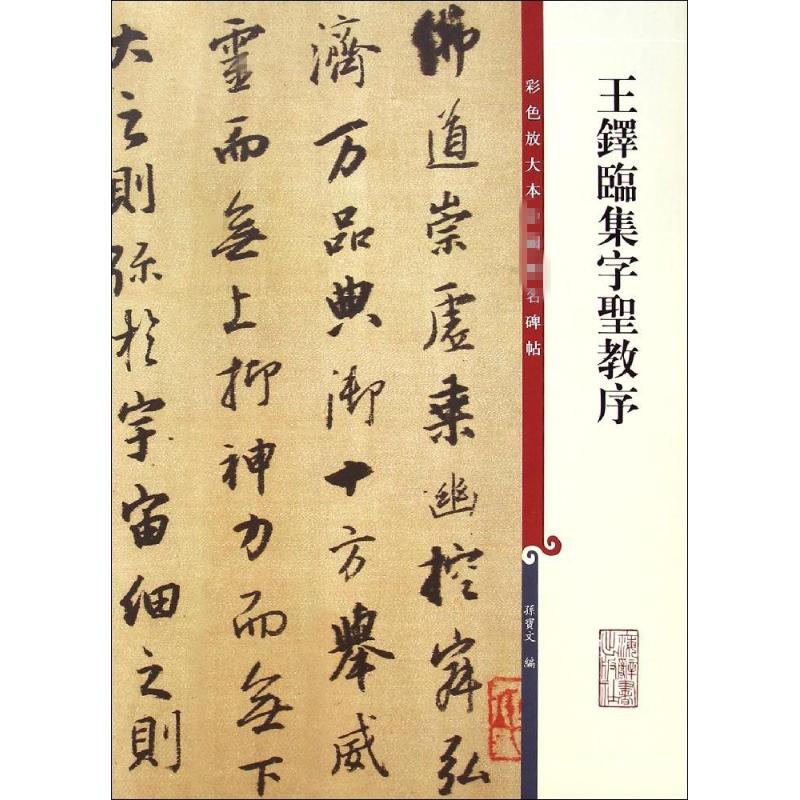 王鐸臨集字聖教序
彩色放大本
名碑帖
孫寶文 編
上海辭書出版社
佛道崇虛乘幽控寂弘
濟万品典御十方舉威
靈而無上抑神力而無下
大之則弥於宇宙細之則